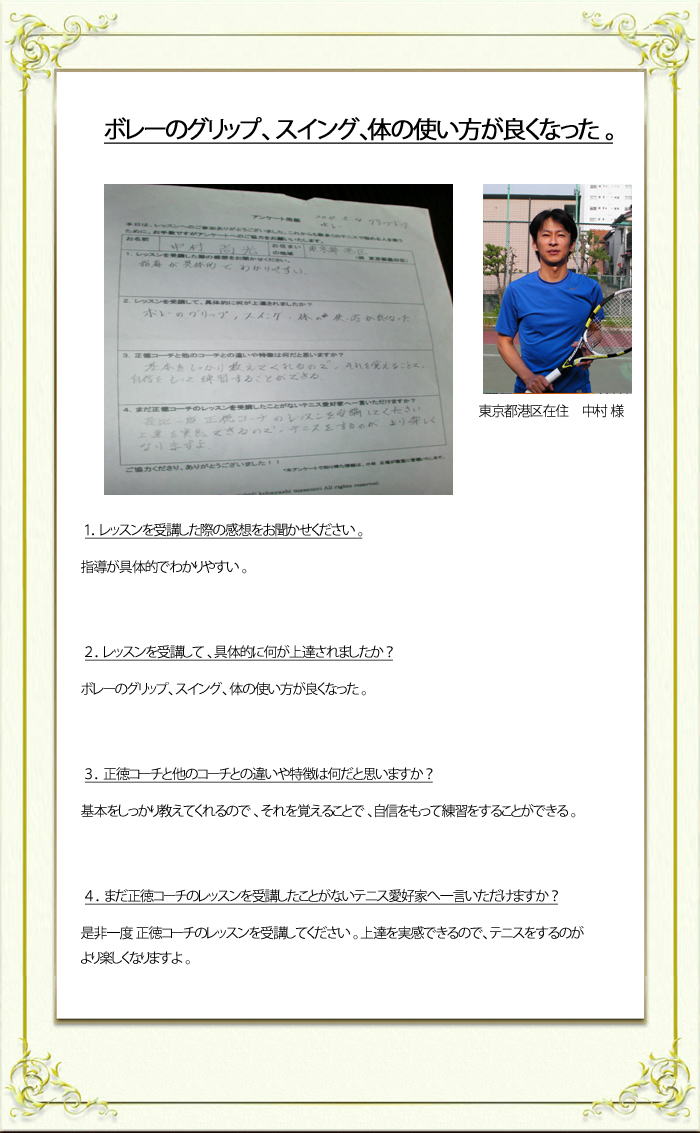 ボレーのグリップ、スイング、体の使い方が良くなった。
アンケート用紙
本日は、レッスンへのご参加ありがとうございました。これからも数多くのテニスで悩める人を救う
ために、お手数ですがアンケートへのご協力をお願いいたします。
お名前 中村 お住まいの地域 東京都港区
1. レッスンを受講した際の感想をお聞かせください。
指導が具体的でわかりやすい。
2. レッスンを受講して、具体的に何が上達されましたか？
ボレーのグリップ、スイング、体の使い方が良くなった
3. 正徳コーチと他のコーチとの違いや特徴は何だと思いますか？
基本をしっかり教えてくれるので、それを覚えることで、
自信をもって練習することができる。
4. まだ正徳コーチのレッスンを受講したことがないテニス愛好家へ一言いただけますか？
是非一度正徳コーチのレッスンを受講してください
上達を実感できるので、テニスをするのが、より楽しく
なりますよ。
ご協力くださり、ありがとうございました！！
All rights reserved.
東京都港区在住 中村 様
1. レッスンを受講した際の感想をお聞かせください。
指導が具体的でわかりやすい。
２. レッスンを受講して、具体的に何が上達されましたか？
ボレーのグリップ、スイング、体の使い方が良くなった。
３. 正徳コーチと他のコーチとの違いや特徴は何だと思いますか？
基本をしっかり教えてくれるので、それを覚えることで、自信をもって練習をすることができる。
４. まだ正徳コーチのレッスンを受講したことがないテニス愛好家へ一言いただけますか？
是非一度 正徳コーチのレッスンを受講してください。上達を実感できるので、テニスをするのが
より楽しくなりますよ。